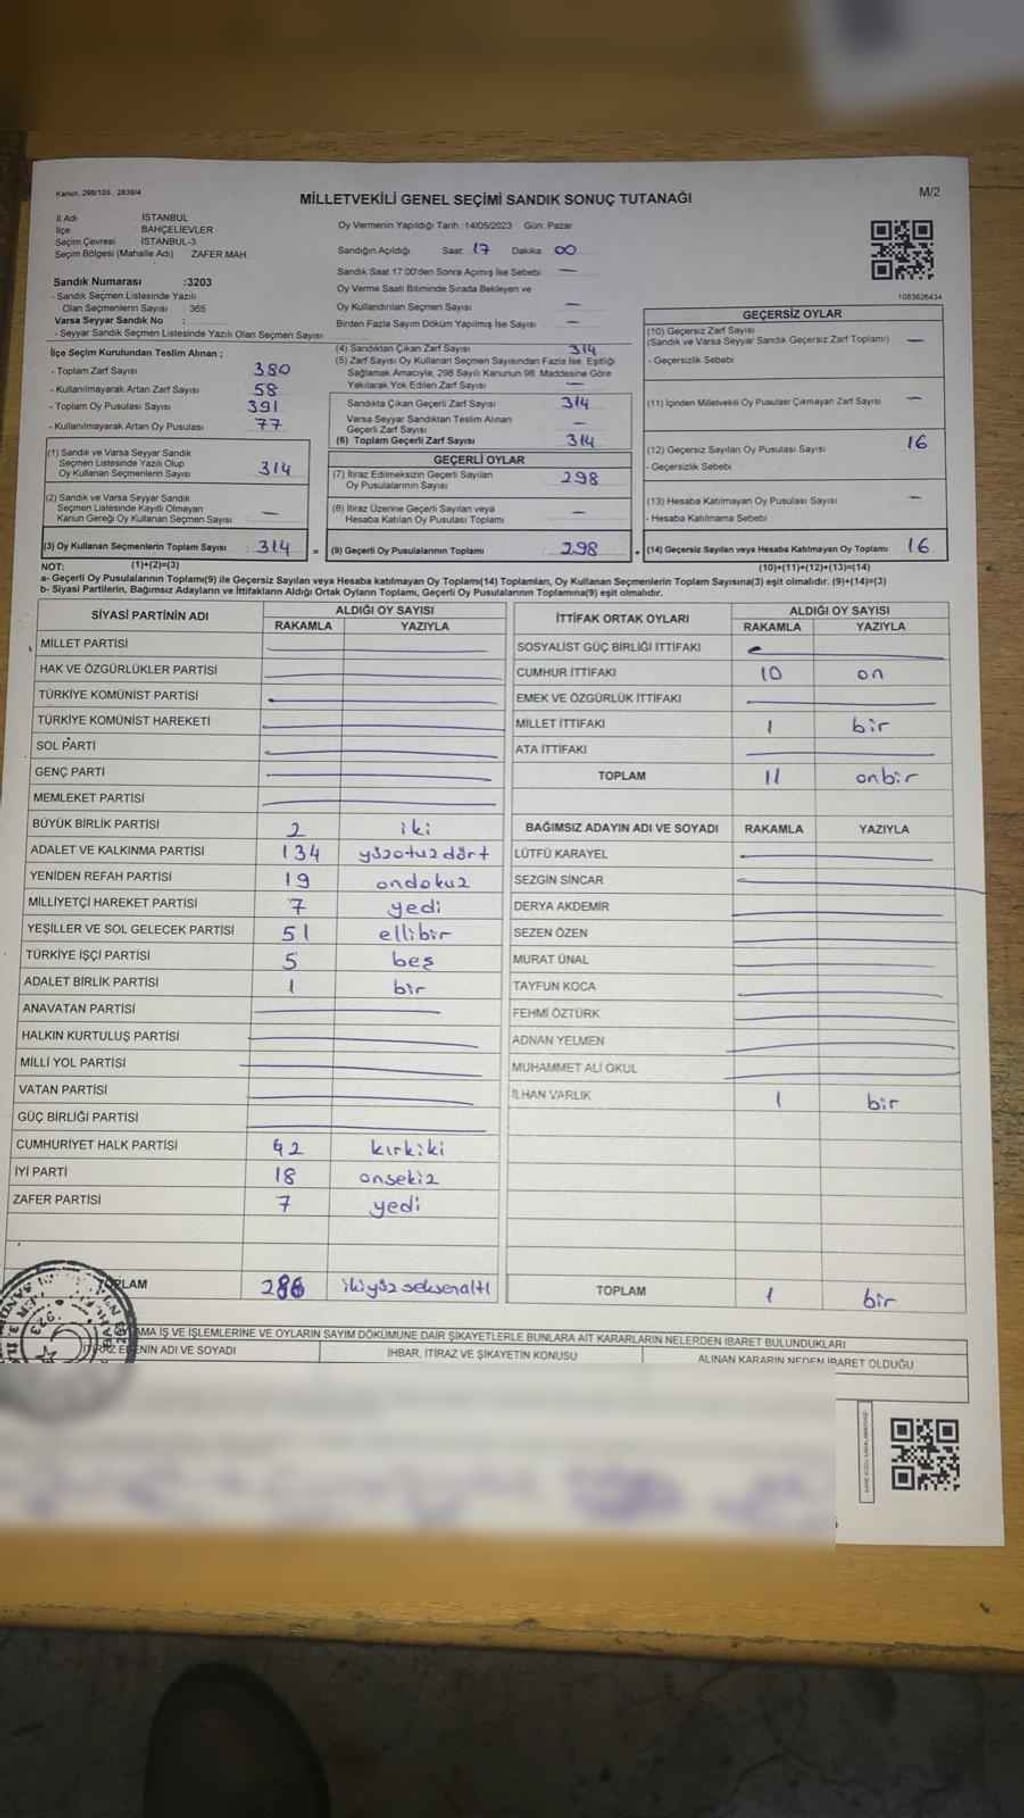 Kanun. 298/105 , 2839/4
MİLLETVEKİLİ GENEL SEÇİMİ SANDIK SONUÇ TUTANAĞI
M/2
İl Adı İSTANBUL
İlçe BAHÇELİEVLER
Seçim Çevresi İSTANBUL-3
Seçim Bölgesi (Mahalle Adı) ZAFER MAH.
Sandık Numarası :3203
- Sandık Seçmen Listesinde Yazılı
Olan Seçmenlerin Sayısı : 365
Varsa Seyyar Sandık No :
- Seyyar Sandık Seçmen Listesinde Yazılı Olan Seçmen Sayısı
Oy Vermenin Yapıldığı Tarih: 14/05/2023 Gün: Pazar
Sandığın Açıldığı Saat: 17 Dakika 00
Sandık Saat 17:00'den Sonra Açılmış İse Sebebi —
Oy Verme Saati Bitiminde Sırada Bekleyen ve
Oy Kullandırılan Seçmen Sayısı —
Birden Fazla Sayım Döküm Yapılmış İse Sayısı —
1083626434
İlçe Seçim Kurulundan Teslim Alınan ;
- Toplam Zarf Sayısı 380
- Kullanılmayarak Artan Zarf Sayısı 58
- Toplam Oy Pusulası Sayısı 391
- Kullanılmayarak Artan Oy Pusulası 77
(1) Sandık ve Varsa Seyyar Sandık
Seçmen Listesinde Yazılı Olup
Oy Kullanan Seçmenlerin Sayısı 314
(2) Sandık ve Varsa Seyyar Sandık
Seçmen Listesinde Kayıtlı Olmayan
Kanun Gereği Oy Kullanan Seçmen Sayısı —
(3) Oy Kullanan Seçmenlerin Toplam Sayısı 314
(4) Sandıktan Çıkan Zarf Sayısı 314
(5) Zarf Sayısı Oy Kullanan Seçmen Sayısından Fazla İse, Eşitliği
Sağlamak Amacıyla, 298 Sayılı Kanunun 98. Maddesine Göre
Yakılarak Yok Edilen Zarf Sayısı —
Sandıkta Çıkan Geçerli Zarf Sayısı 314
Varsa Seyyar Sandıktan Teslim Alınan
Geçerli Zarf Sayısı —
(6) Toplam Geçerli Zarf Sayısı 314
GEÇERLİ OYLAR
(7) İtiraz Edilmeksizin Geçerli Sayılan
Oy Pusulalarının Sayısı 298
(8) İtiraz Üzerine Geçerli Sayılan veya
Hesaba Katılan Oy Pusulası Toplamı —
= (9) Geçerli Oy Pusulalarının Toplamı 298
GEÇERSİZ OYLAR
(10) Geçersiz Zarf Sayısı
(Sandık ve Varsa Seyyar Sandık Geçersiz Zarf Toplamı) —
- Geçersizlik Sebebi
(11) İçinden Milletvekili Oy Pusulası Çıkmayan Zarf Sayısı —
(12) Geçersiz Sayılan Oy Pusulası Sayısı 16
- Geçersizlik Sebebi
(13) Hesaba Katılmayan Oy Pusulası Sayısı —
- Hesaba Katılmama Sebebi
+ (14) Geçersiz Sayılan veya Hesaba Katılmayan Oy Toplamı 16
NOT: (1)+(2)=(3) (10)+(11)+(12)+(13)=(14)
a- Geçerli Oy Pusulalarının Toplamı(9) ile Geçersiz Sayılan veya Hesaba katılmayan Oy Toplamı(14) Toplamları, Oy Kullanan Seçmenlerin Toplam Sayısına(3) eşit olmalıdır. (9)+(14)=(3)
b- Siyasi Partilerin, Bağımsız Adayların ve İttifakların Aldığı Ortak Oyların Toplamı, Geçerli Oy Pusulalarının Toplamına(9) eşit olmalıdır.
SİYASİ PARTİNİN ADI ALDIĞI OY SAYISI
RAKAMLA YAZIYLA
MİLLET PARTİSİ
HAK VE ÖZGÜRLÜKLER PARTİSİ
TÜRKİYE KOMÜNİST PARTİSİ
TÜRKİYE KOMÜNİST HAREKETİ
SOL PARTİ
GENÇ PARTİ
MEMLEKET PARTİSİ
BÜYÜK BİRLİK PARTİSİ 2 iki
ADALET VE KALKINMA PARTİSİ 134 yüzotuzdört
YENİDEN REFAH PARTİSİ 19 ondokuz
MİLLİYETÇİ HAREKET PARTİSİ 7 yedi
YEŞİLLER VE SOL GELECEK PARTİSİ 51 ellibir
TÜRKİYE İŞÇİ PARTİSİ 5 beş
ADALET BİRLİK PARTİSİ 1 bir
ANAVATAN PARTİSİ
HALKIN KURTULUŞ PARTİSİ
MİLLİ YOL PARTİSİ
VATAN PARTİSİ
GÜÇ BİRLİĞİ PARTİSİ
CUMHURİYET HALK PARTİSİ 42 kırkiki
İYİ PARTİ 18 onsekiz
ZAFER PARTİSİ 7 yedi
TOPLAM 286 ikiyüzseksenaltı
İTTİFAK ORTAK OYLARI ALDIĞI OY SAYISI
RAKAMLA YAZIYLA
SOSYALİST GÜÇ BİRLİĞİ İTTİFAKI
CUMHUR İTTİFAKI 10 on
EMEK VE ÖZGÜRLÜK İTTİFAKI
MİLLET İTTİFAKI 1 bir
ATA İTTİFAKI
TOPLAM 11 onbir
BAĞIMSIZ ADAYIN ADI VE SOYADI RAKAMLA YAZIYLA
LÜTFÜ KARAYEL
SEZGİN SİNCAR
DERYA AKDEMİR
SEZEN ÖZEN
MURAT ÜNAL
TAYFUN KOCA
FEHMİ ÖZTÜRK
ADNAN YELMEN
MUHAMMET ALİ OKUL
İLHAN VARLIK 1 bir
TOPLAM 1 bir
AMA İŞ VE İŞLEMLERİNE VE OYLARIN SAYIM DÖKÜMÜNE DAİR ŞİKAYETLERLE BUNLARA AİT KARARLARIN NELERDEN İBARET BULUNDUKLARI
İTİRAZ EDENİN ADI VE SOYADI İHBAR, İTİRAZ VE ŞİKAYETİN KONUSU ALINAN KARARIN NEDEN İBARET OLDUĞU